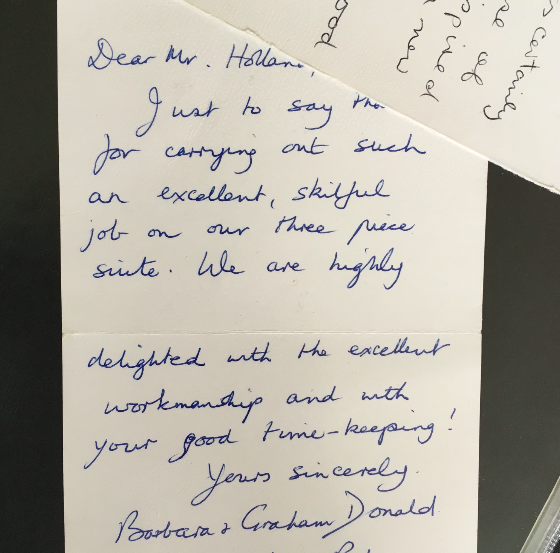 Dear Mr. Holland,
Just to say
for carrying out such
an excellent, skilful
job on our three piece
suite. We are highly
delighted with the excellent
workmanship and with
your good time-keeping!
Yours sincerely.
Barbara & Graham Donald
certainly
of
now